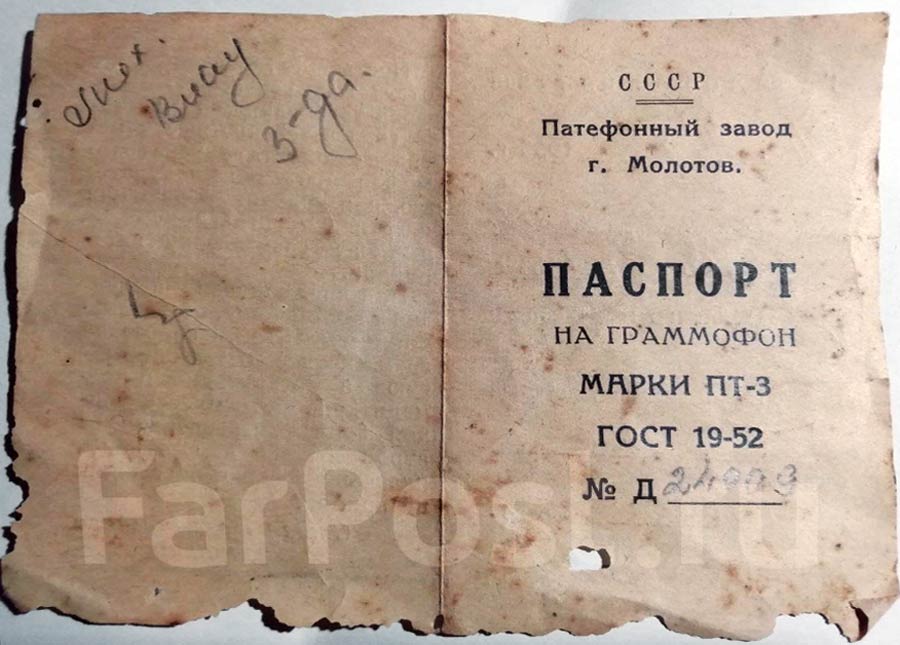 3-да.
СССР
Патефонный завод
г. Молотов.
ПАСПОРТ
НА ГРАММОФОН
МАРКИ ПТ-3
ГОСТ 19-52
№ Д
FarPost.ru